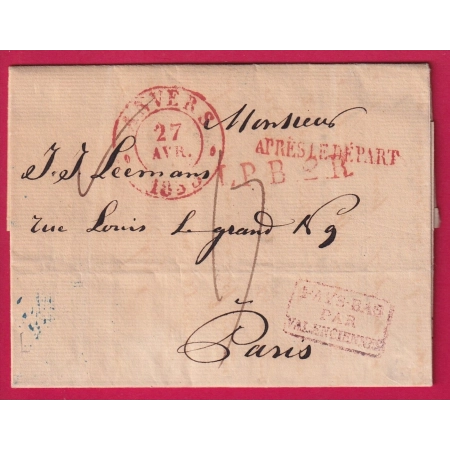 ANVERS
27
AVR.
Monsieur
APRÈS LE DÉPART
L.P.B.2.R
J. J. Leemans
rue Louis le grand N 9
PAYS-BAS
PAR
VALENCIENNES
Paris